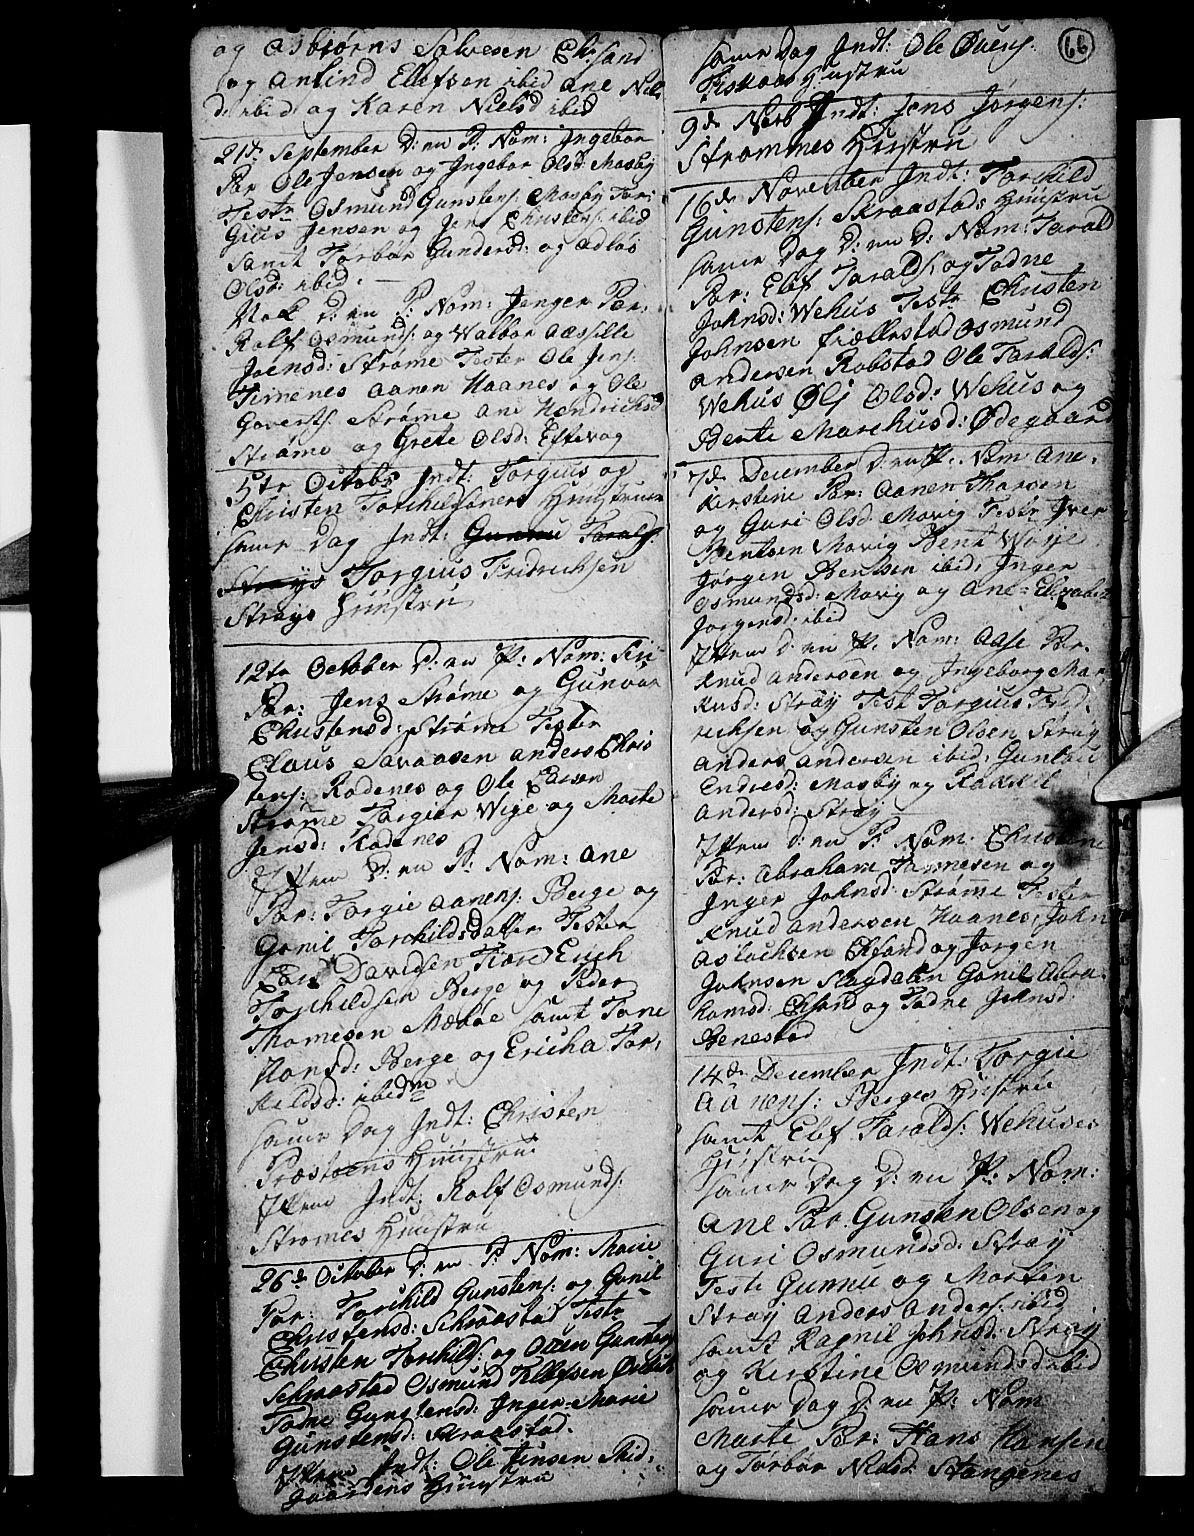 og Asbiørns Salvesen Chr:sand
og Anlind Ellefsen ibid Ane Niels
d: ibid og Karen Nielsd ibid
21de September D: en P: Nom: Ingebor
Par Ole Jensen og Ingebor Olsd: Mosby
Testr Osmund Gunstens: Mosby Tor-
gius Jensen og Jens Christens: ibid
samt Torbor Gundersd: og Adlos
Olsd: ibid. —
Nok D: en P: Nom: Jenger Par:
Rolf Osmunds: og Walbor Assille
Joensd: Strøme Tester Ole Jens:
Timenes Aanen Haanes og Ole
Goverts: Strøme Ane Hendrichsd
Strøme og Grete Olsd: Eftevog
5te Octobr Indt: Torgius og
Christen Torchilsøners Huustruer
samme Dag Indt: Gunnu Taralds:
Strays Torgius Fridrichsen
Strays Huustru
12te October D: en P: Nom: Siri
Par: Jens Strøme og Gunvor
Christensd: Strøme Tester
Claus Savaasen Anders Chris
tens: Kodenes og Ole Larsen
Strøme Torgier Wige og Marte
Jensd: Kodenes
Item D: en P: Nom: Ane
Par: Torgie Aanens: Berge og
Gonil Torchildsdatter Tester
David­sen Erich
Torchildsen Berge og Peder
Thomesen Mæbøe samt Tone
Hansd: Berge og Ericha Tor:
kildsd: ibidm
samme Dag Indt: Christen
Præstøens Huustrue
Item Indt: Rolf Osmunds:
Strømes Huustru
26de October D: en P: Nom: Marie
Par: Torchild Gunstens: og Gonil
Christensd: Schraastad Testr
Christen Torchilds: og Otten Gunstens
Schraastad Osmund Tellefsen
Todne Gunstensd: Inger-Marie
Gunstensd: Skraastad.
Item Indt: Ole Jensen Mid:
gaardens Huustru
66
samme Dag Indt: Ole Ouens:
Fiskaas Huustru
9de Novb Indt: Jens Jørgens:
Strømmes Huustru
16de November Indt: Torchild
Gunstens: Skraastads Huustru
samme Dag D: en D: Nom: Tarald
Par: Elef Taralds: og Todne
Johnsd: Wehus Testr Christen
Johnsen Fiællestad Osmund
Andersen Robstad Ole Taralds:
Wehus Øli Olsd: Wehus og
Bente Marchusd: Ødegaard
7de December D: en P: Nom Ane-
Kirstine Par: Aanen Thorsen
og Guri Olsd: Movig Testr Iver
Bentsen Movig Bent Woje
Jørgen Bentsen ibid, Inger
Osmundsd: Movig og Ane-Elisabet
Jorgensd: ibid
Item D: en P. Nom: Aase Par.
Knud Andersen og Ingeborg Mar
kusd: Stray Test Torgius Frid,
richsen og Gunsten Olsen Stray
Anders Andersen ibid, Gunlau
Endresd: Mosby og Rakkil
Andersd: Stray
Item D: en P: Nom. Christine
Par: Abraham Tønnesen og
Inger Johnsd: Strøme Tester
Knud Andersen Haanes, John
Aslachsen Chsand og Jørgen
Johnsen Slagdalen Gonil Abra
hamsd: Chsand og Todne Johnsd:
Benestad
14de December Indt: Torgie
Aanens: Berges Hustrue
samt Elef Taralds: Wehuses
Hustru
samme Dag D: en P: Nom:
Ane Par. Gunsten Olsen og
Guri Osmundsd: Stray
Teste Gunnu og Morten
Stray Anders Anders: ibid
samt Ragnil Johnsd: Stray
og Kirstine Osmundsd: ibid
samme Dag D: en P: Nom
Marte Par: Hans Hansen
og Torbor Nielsd Stangenes